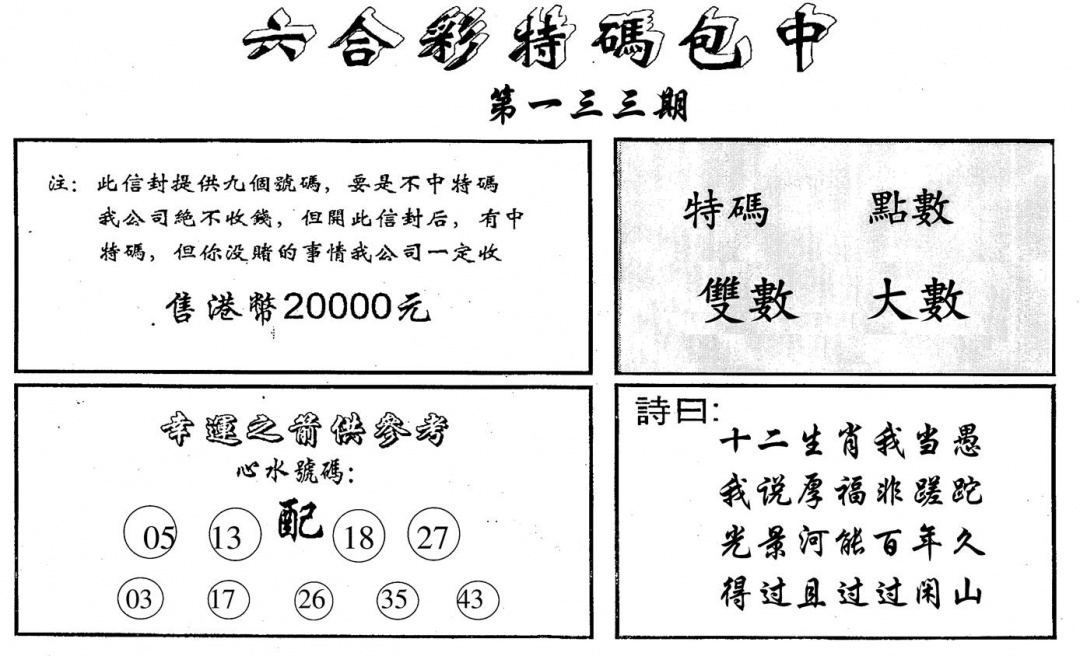 六合彩特碼包中
第一三三期
注：此信封提供九個號碼，要是不中特碼
我公司絕不收錢，但開此信封后，有中
特碼，但你没賭的事情我公司一定收
售港幣20000元
特碼 點數
雙數 大數
幸運之箭供參考
心水號碼：
05 13 配 18 27
03 17 26 35 43
詩曰：
十二生肖我当愚
我说厚福非蹉跎
光景河能百年久
得过且过过闲山